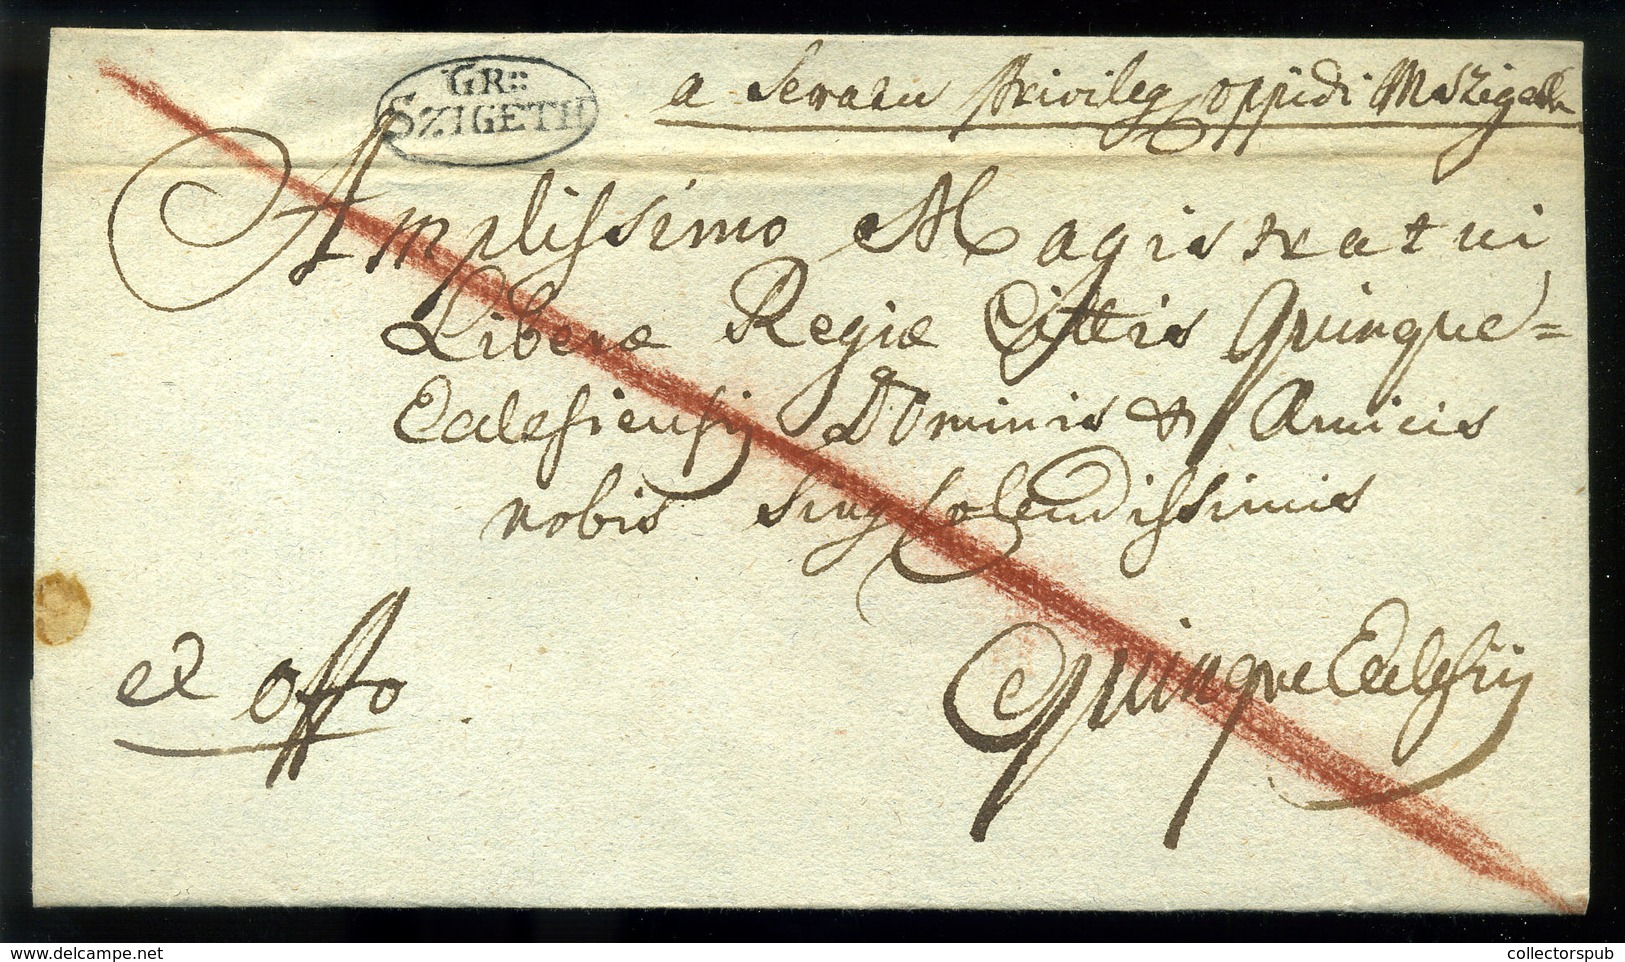 GR::
SZIGETH
a Senatu Privileg oppidi MSzigeth
Amplissimo Magistratui
Liberæ Regiæ Cittis Quinque=
Ecclesiensij Dominis & Amicis
nobis Sing Colendissimis
ex offo
Quinque Ecclesijs
collectorspub